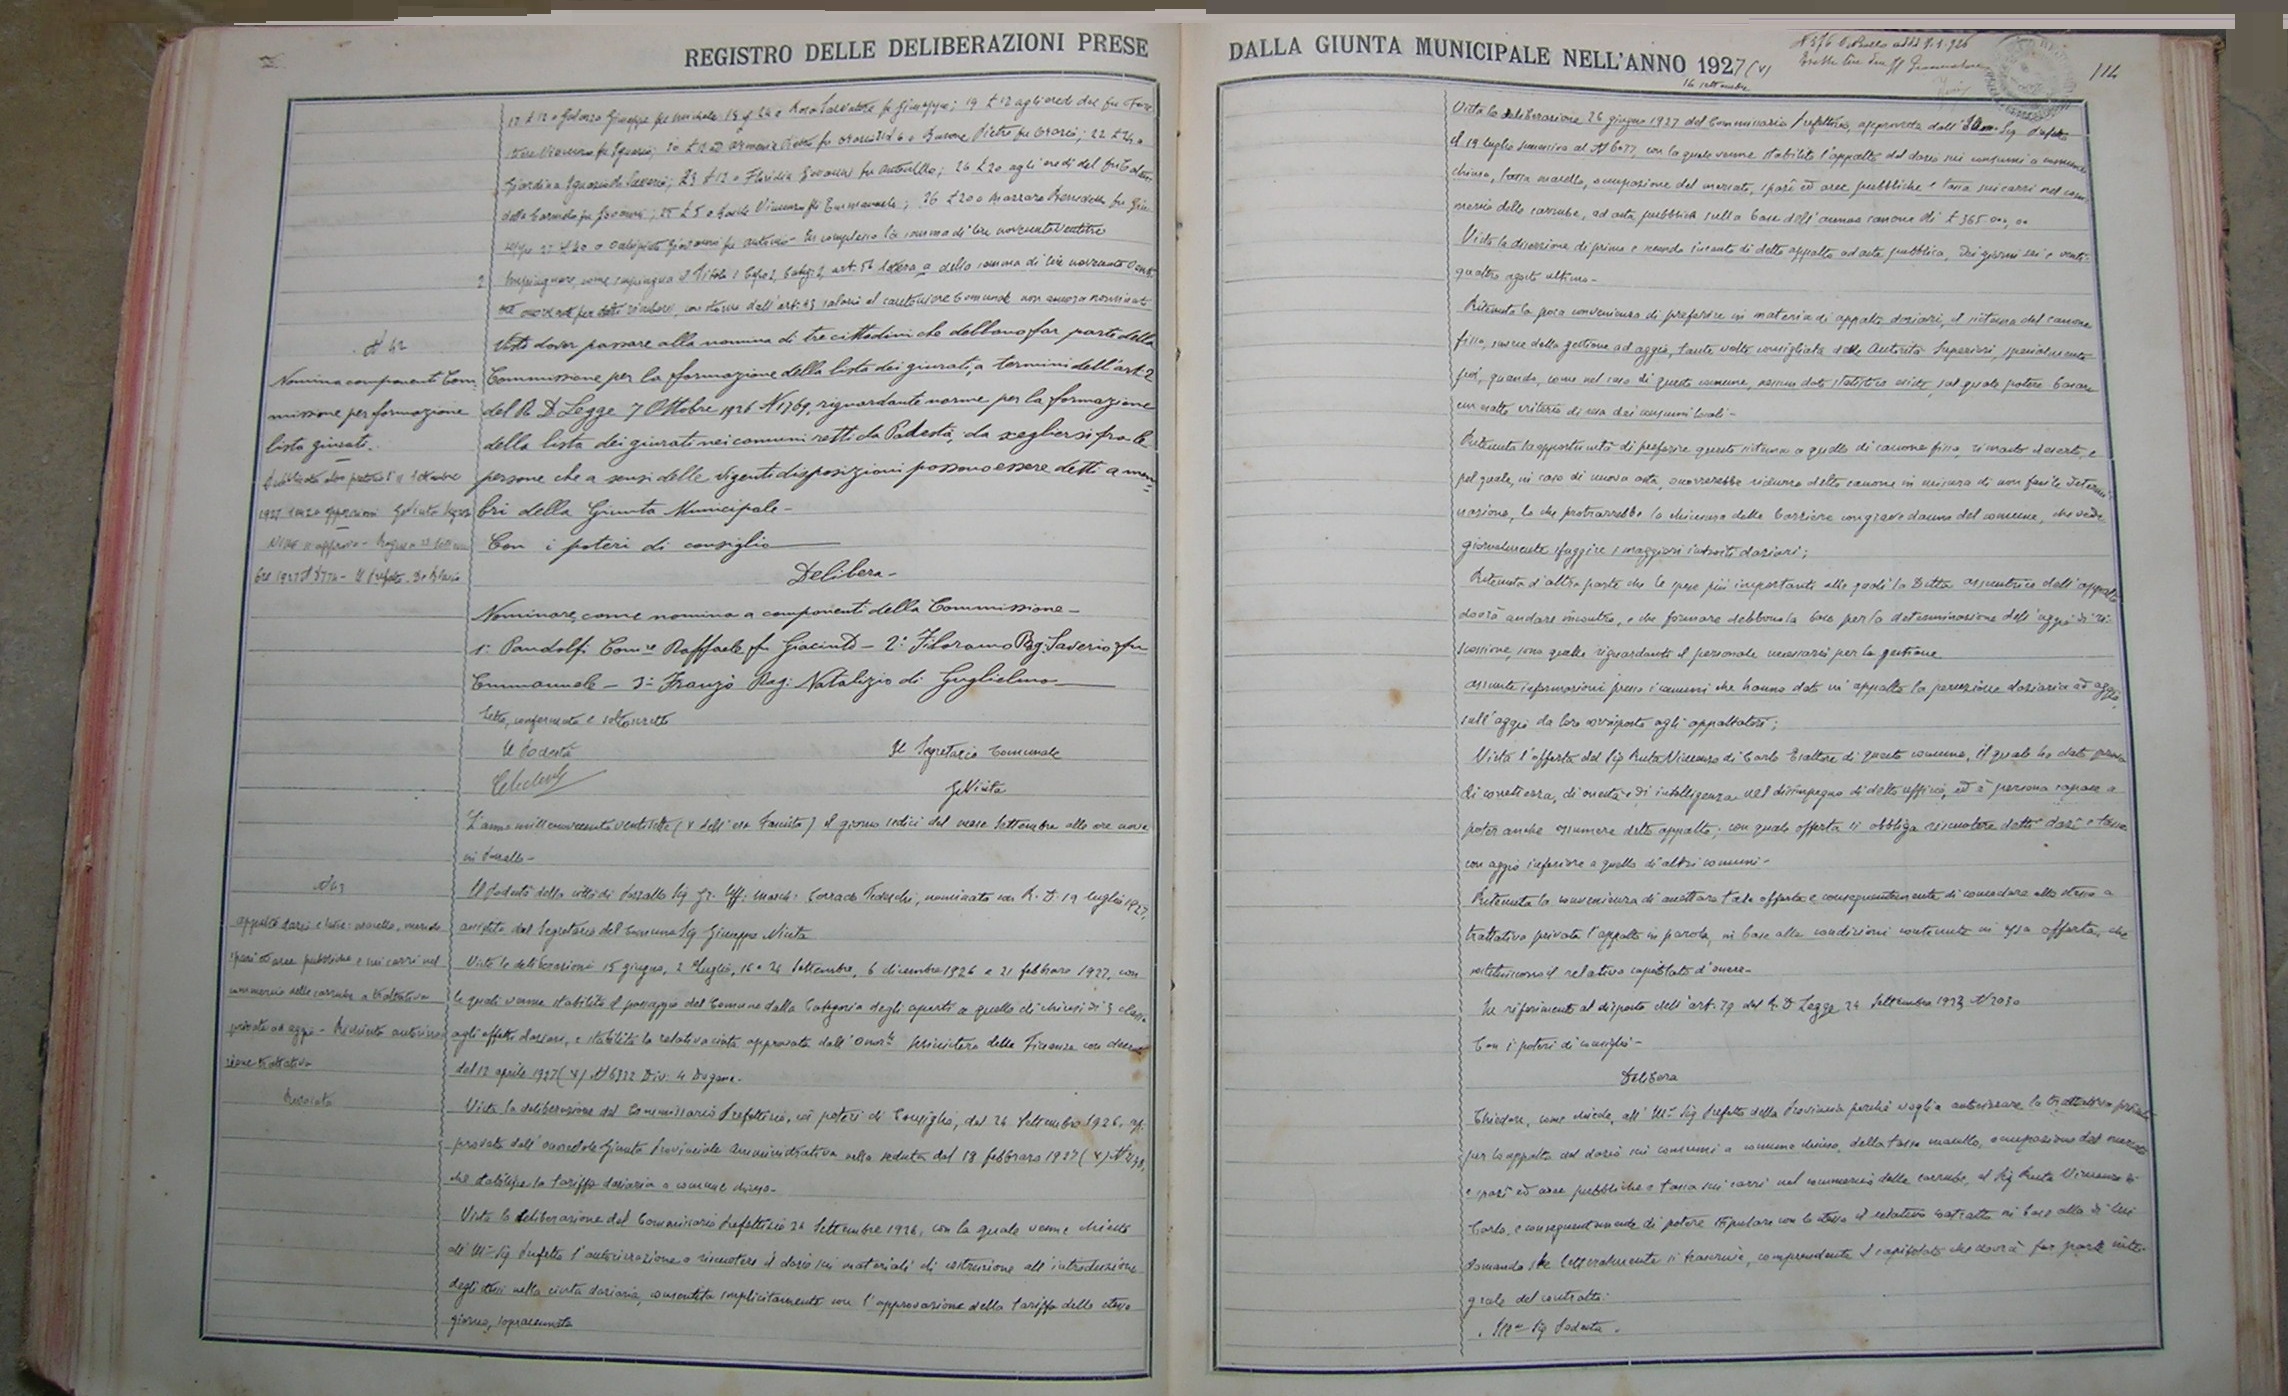 REGISTRO DELLE DELIBERAZIONI PRESE
17 £ 12 a Giuseppe fu Michele 18 £ 24 a Rosa Salvatore fu Giuseppe; 19 £ 12 agli eredi del fu
Vincenzo fu Ignazio; Pietro fu Orazio; 22 £ 24 a
Giardina Ignazio di Saverio; 23 £ 12 a Floridia Giovanni fu Antonino; 24 £ 20 agli eredi del fu
Carmelo fu Giovanni; 25 £ 5 a Basile Vincenzo di Emmanuele; 26 £ 20 a Benedetto fu
27 £ 20 a Giovanni fu Antonio - In complesso la somma di lire novecentoventitre
2 Impinguare, come impingua il Titolo 1 Capo 2, Categ: 2, art. 56 lettera a della somma di lire novecento
per detti rimborsi, con storno dall'art. 43 salario al cantoniere Comunale non ancora nominato
N 62
Nomina componenti Com-
missione per formazione
lista giurati.
Pubblicata albo pretorio
1927 senza opposizioni
N
1927 Il Prefetto
Visto dover passare alla nomina di tre cittadini che debbono far parte della
Commissione per la formazione della lista dei giurati, a termini dell'art. 2
del R. D. Legge 7 Ottobre 1926 N 1769, riguardante norme per la formazione
della lista dei giurati nei comuni retti da Podestà, da scegliersi fra le
persone che a sensi delle vigenti disposizioni possono essere eletti a mem-
bri della Giunta Municipale -
Con i poteri di consiglio
Delibera -
Nominare, come nomina a componenti della Commissione -
1° Pandolfi Comre Raffaele fu Giacinto - 2° Filoramo Rag: Saverio fu
Emmanuele - 3° Franzò Rag: Natalizio di Guglielmo
Letto, confermato e sottoscritto
Il Podestà
Il Segretario Comunale
GNivita
L'anno millenovecentoventisette (V dell'era Fascista) il giorno sedici del mese Settembre alle ore nove
in Pozzallo -
N 63
appalto dazi e tasse: macello, mercato
spazi ed aree pubbliche e sui carri nel
commercio delle carrube a trattativa
privata ad aggio - Richiesta autorizza-
zione trattativa
Revocata
Il Podestà della città di Pozzallo Sig Gr. Uff: March: Corrado Tedeschi, nominato con R. D. 19 luglio 1927,
assistito dal Segretario del Comune Sig Giuseppe Nivita
Viste le deliberazioni 15 giugno, 2 Luglio, 16 e 24 Settembre, 6 dicembre 1926 e 21 febbraio 1927, con
le quali venne stabilito il passaggio del Comune dalla Categoria degli aperti a quella di chiusi di 3 classe
agli effetti daziari, e stabilita la relativa cinta approvata dall'Onorle Ministero delle Finanze con decreto
del 12 aprile 1927 (V) N 6322 Div. 4 Dogane -
Vista la deliberazione del Commissario Prefettizio, coi poteri di Consiglio, del 24 Settembre 1926, ap-
provata dall'onorevole Giunta Provinciale Amministrativa nella seduta del 18 febbraio 1927 (V)
che stabilisce la tariffa daziaria a comune chiuso -
Vista la deliberazione del Commissario Prefettizio 24 Settembre 1926, con la quale venne chiesto
all'Illmo Sig Prefetto l'autorizzazione a riscuotere il dazio sui materiali di costruzione all'introduzione
degli stessi nella cinta daziaria, consentita implicitamente con l'approvazione della tariffa dello stesso
giorno, sopracennata
DALLA GIUNTA MUNICIPALE NELL'ANNO 1927 (V)
16 settembre
114
Vista la deliberazione 26 giugno 1927 del Commissario Prefettizio, approvata dall'Illmo Sig Prefetto
il 19 luglio successivo al N 6077, con la quale venne stabilito l'appalto del dazio sui consumi a comune
chiuso, tassa macello, occupazione del mercato, spazi ed aree pubbliche e tassa sui carri nel com-
mercio delle carrube, ad asta pubblica sulla base dell'annuo canone di £ 365 000,00
Vista la diserzione di primo e secondo incanto di detto appalto ad asta pubblica, dei giorni sei e venti-
quattro agosto ultimo -
Ritenuta la poca convenienza di preferire in materia di appalti daziari, il sistema del canone
fisso, invece della gestione ad aggio, tante volte consigliata dalle Autorità Superiori, specialmente
poi, quando, come nel caso di questo comune, nessun dato statistico esiste, sul quale potere basare
un esatto criterio di essa dei consumi locali -
Ritenuta l'opportunità di preferire questo sistema a quello di canone fisso, rimasto deserto, e
pel quale, in caso di nuova asta, occorrerebbe ridurre detto canone in misura di non facile determi-
nazione, lo che protrarrebbe la chiusura delle barriere con grave danno del comune, che vede
giornalmente sfuggire i maggiori introiti daziari;
Ritenuto d'altra parte che le spese più importanti alle quali la Ditta assuntrice dell'appalto
dovrà andare incontro, e che formare debbono la base per la determinazione dell'aggio di ri-
scossione, sono quelle riguardanti il personale necessario per la gestione
assunte informazioni presso i comuni che hanno dato in appalto la percezione daziaria ad aggio,
sull'aggio da loro corrisposto agli appaltatori;
Vista l'offerta del Sig Ruta Vincenzo di Carlo Esattore di questo comune, il quale ha dato prova
di correttezza, di onestà e di intelligenza nel disimpegno di detto ufficio, ed è persona capace a
poter anche assumere detto appalto; con quale offerta si obbliga riscuotere detti dazi e tasse
con aggio inferiore a quello di altri comuni -
Ritenuta la convenienza di accettare tale offerta e conseguentemente di concedere allo stesso a
trattativa privata l'appalto in parola, in base alle condizioni contenute in essa offerta, che
costituiscono il relativo capitolato d'onere -
In riferimento al disposto dell'art. 79 del R. D Legge 24 Settembre 1923 N 2030
Con i poteri di consiglio -
Delibera
Chiedere, come chiede, all'Illmo Sig Prefetto della Provincia perché voglia autorizzare la trattativa privata
per l'appalto del dazio sui consumi a comune chiuso, della tassa macello, occupazione del mercato
e spazi ed aree pubbliche e tassa sui carri nel commercio delle carrube, al Sig Ruta Vincenzo di
Carlo, e conseguentemente di potere stipulare con lo stesso il relativo contratto in base alla di lui
domanda che letteralmente si trascrive, comprendente il capitolato che dovrà far parte inte-
grale del contratto:
" Illmo Sig Podestà "